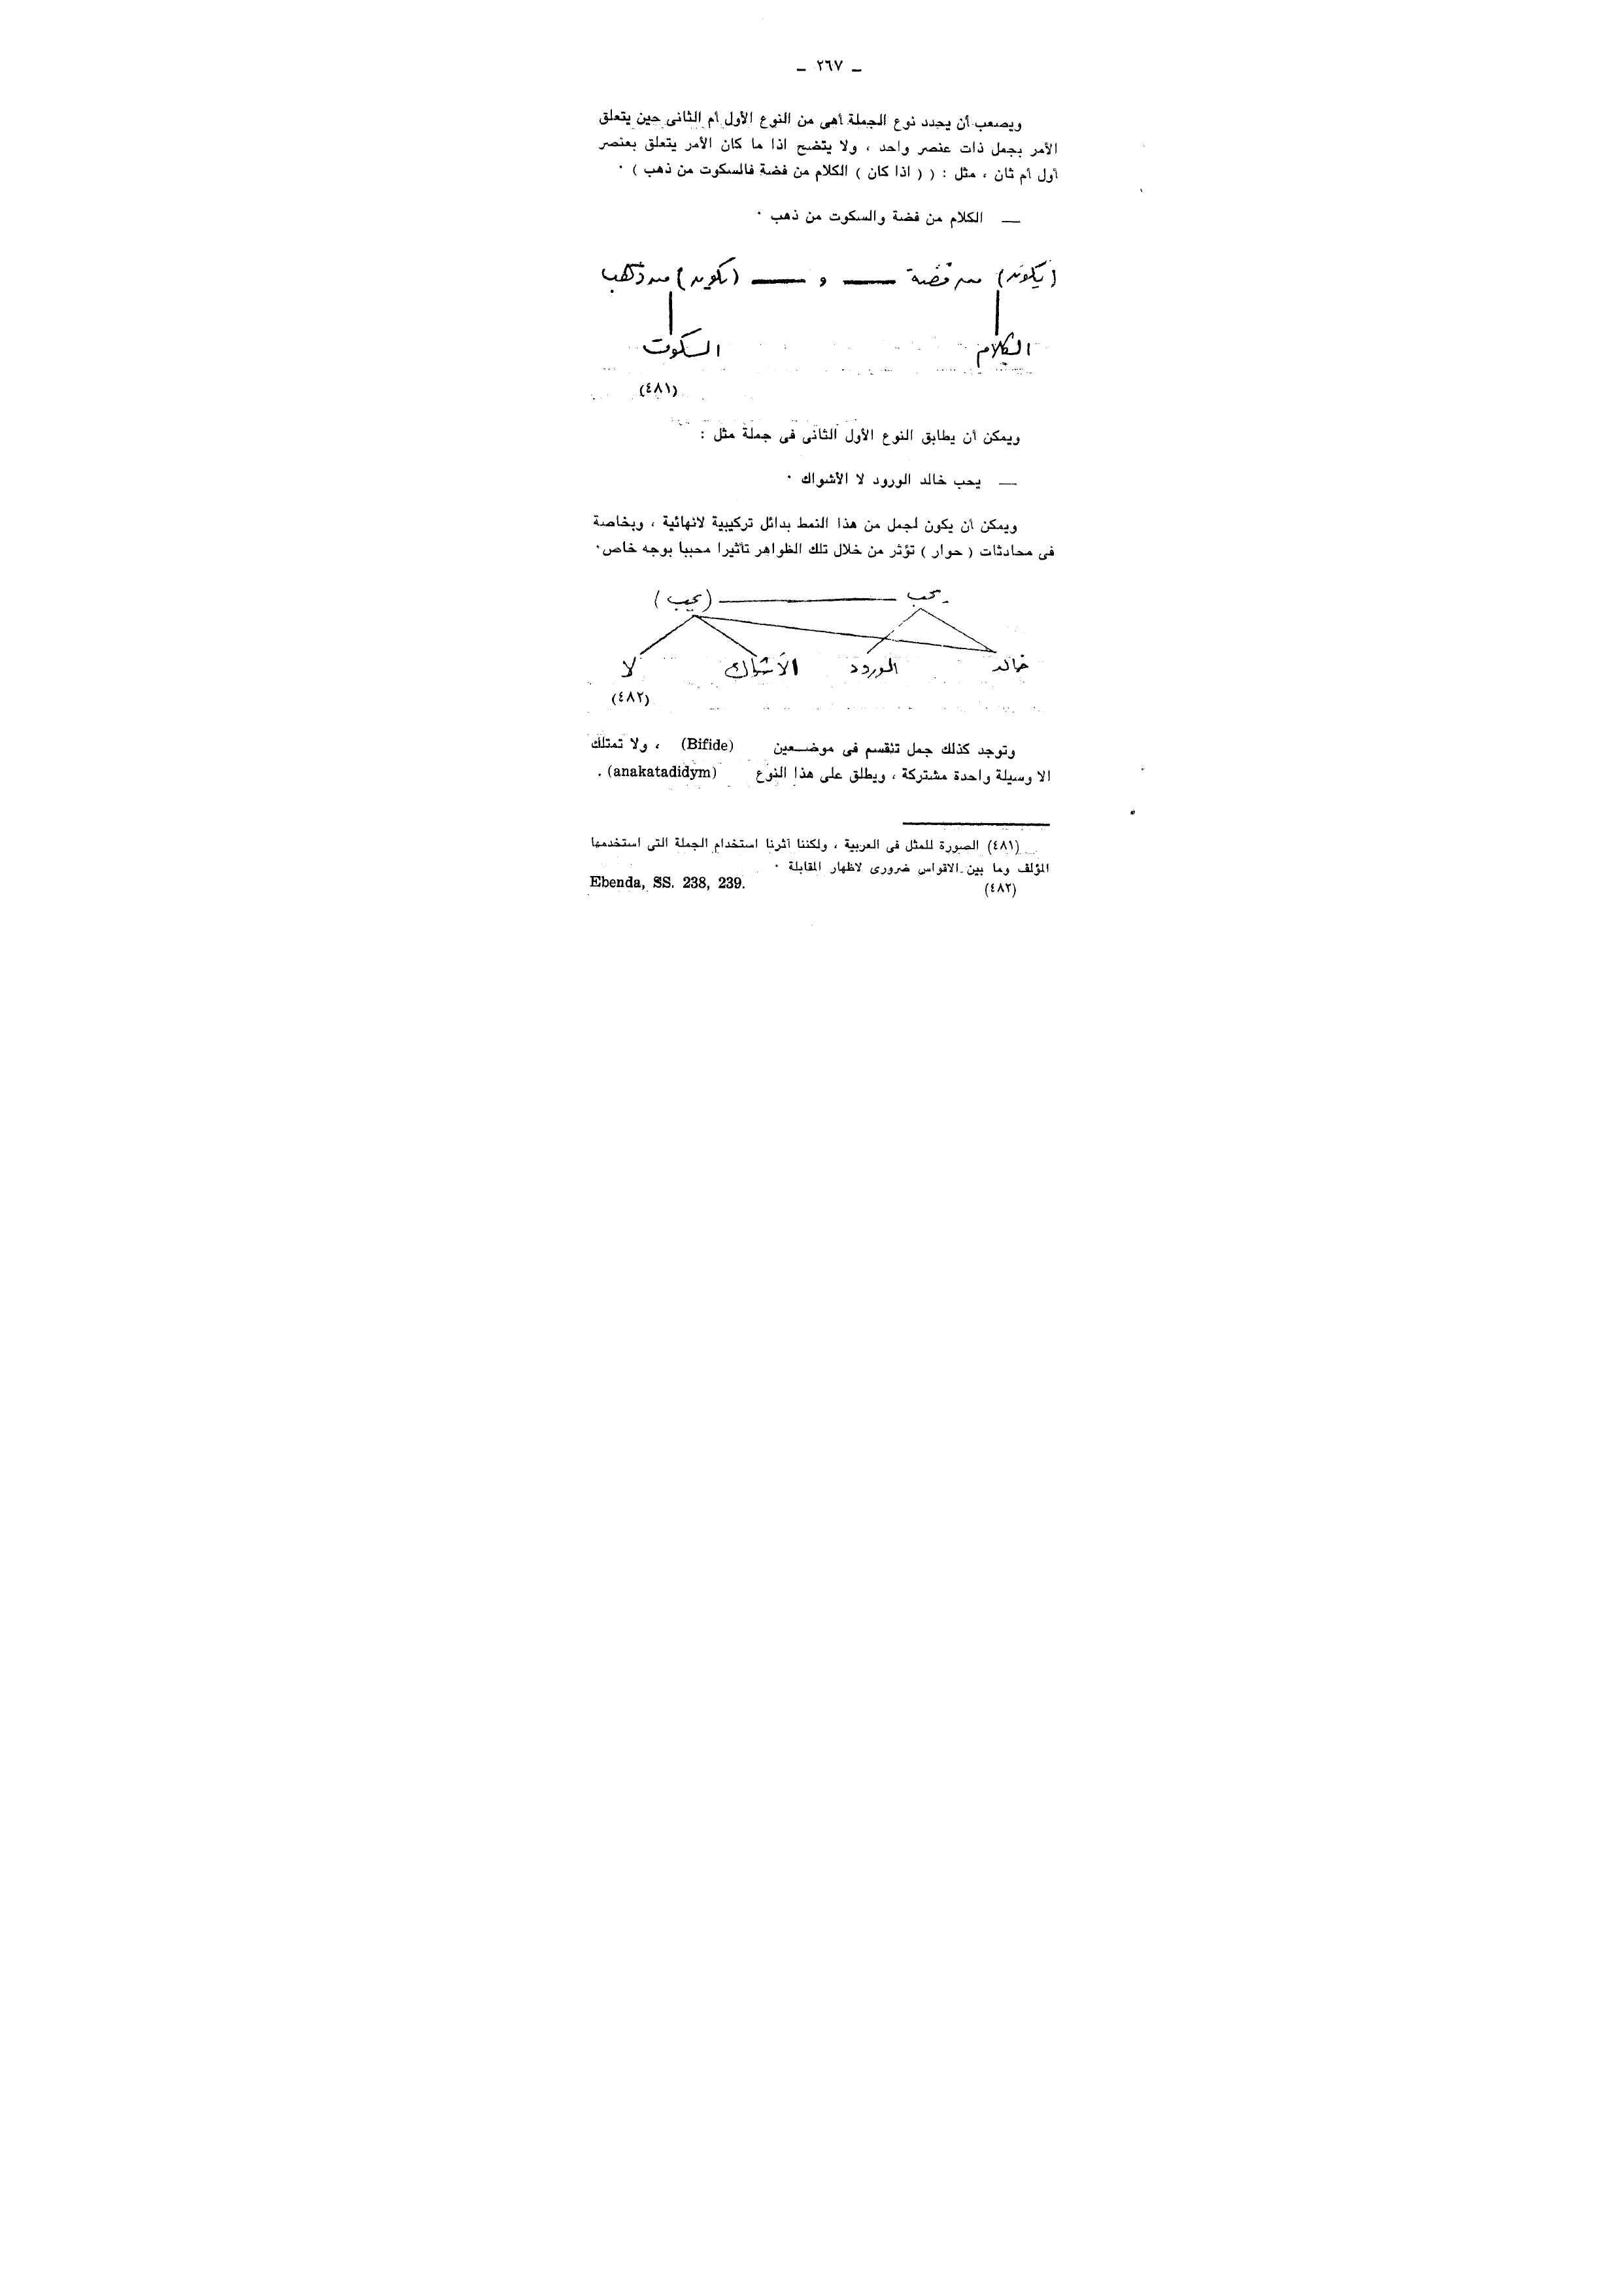 ـ ٢٦٧ ـ
ويصعب أن يحدد نوع الجملة أهى من النوع الأول أم الثانى حين يتعلق
الأمر بجمل ذات عنصر واحد ، ولا يتضح اذا ما كان الأمر يتعلق بعنصر
أول أم ثان ، مثل : ( ( اذا كان ) الكلام من فضة فالسكوت من ذهب ) ٠
ـــ الكلام من فضة والسكوت من ذهب ٠
(يكون) من فضة ـــ و ـــ (يكون) من ذهب
الكلام السكوت
(٤٨١)
ويمكن أن يطابق النوع الأول الثانى فى جملة مثل :
ـــ يحب خالد الورود لا الأشواك ٠
ويمكن أن يكون لجمل من هذا النمط بدائل تركيبية لانهائية ، وبخاصة
فى محادثات ( حوار ) تؤثر من خلال تلك الظواهر تأثيرا محببا بوجه خاص ٠
يحب ـــــــ (يحب)
خالد الورود الأشواك لا
(٤٨٢)
وتوجد كذلك جمل تنقسم فى موضـــعين (Bifide) ، ولا تمتلك
الا وسيلة واحدة مشتركة ، ويطلق على هذا النوع (anakatadidym) .
(٤٨١) الصورة للمثل فى العربية ، ولكننا آثرنا استخدام الجملة التى استخدمها
المؤلف وما بين الاقواس ضرورى لاظهار المقابلة ٠
(٤٨٢) Ebenda, SS. 238, 239.